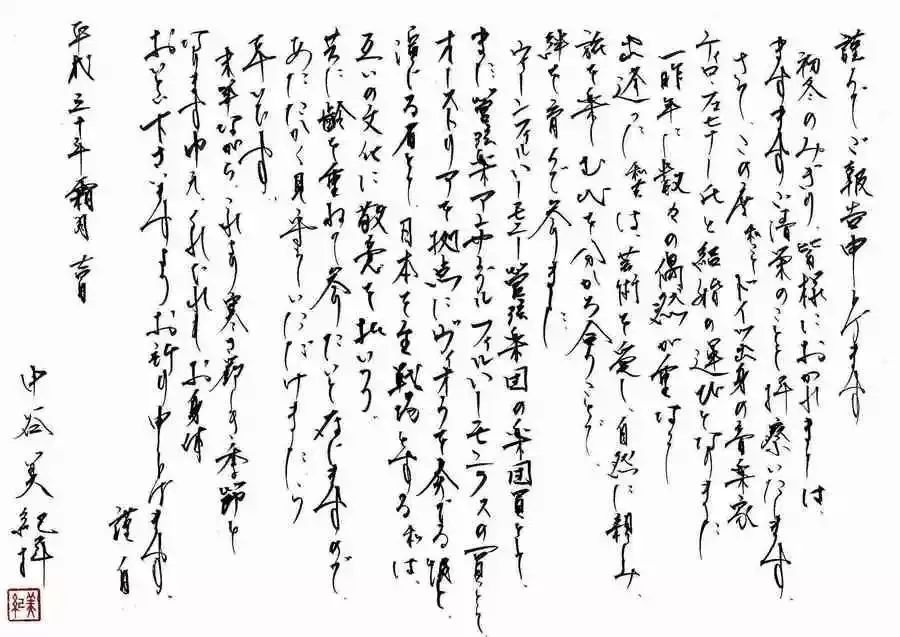 謹んでご報告申し上げます
初冬のみぎり、皆様におかれましては、
ますますご清栄のことと拝察いたします。
さて、この度私ことドイツ出身の音楽家
ティロ・フェヒナー氏と結婚の運びとなりました。
一昨年に数々の偶然が重なり
出逢った私共は、芸術を愛し、自然に親しみ、
旅を楽しむ心を分かち合うことで、
絆を育んで参りました。
ウィーンフィルハーモニー管弦楽団の楽団員として、
また、管弦楽アンサンブルフィルハーモニクスの一員として
オーストリアを拠点にヴィオラを奏でる彼と、
演じる者とし、日本を主戦場とする私は、
互いの文化に敬意を払いつつ、
共に齢を重ねて参りたいと存じますので、
あたたかく見守っていただけましたら
幸いです。
末筆ながら、これより寒さ厳しき季節と
なります故、くれぐれもお身体
おいとい下さいますようお祈り申し上げます。
謹白
平成三十年霜月吉日
中谷美紀拝
美紀